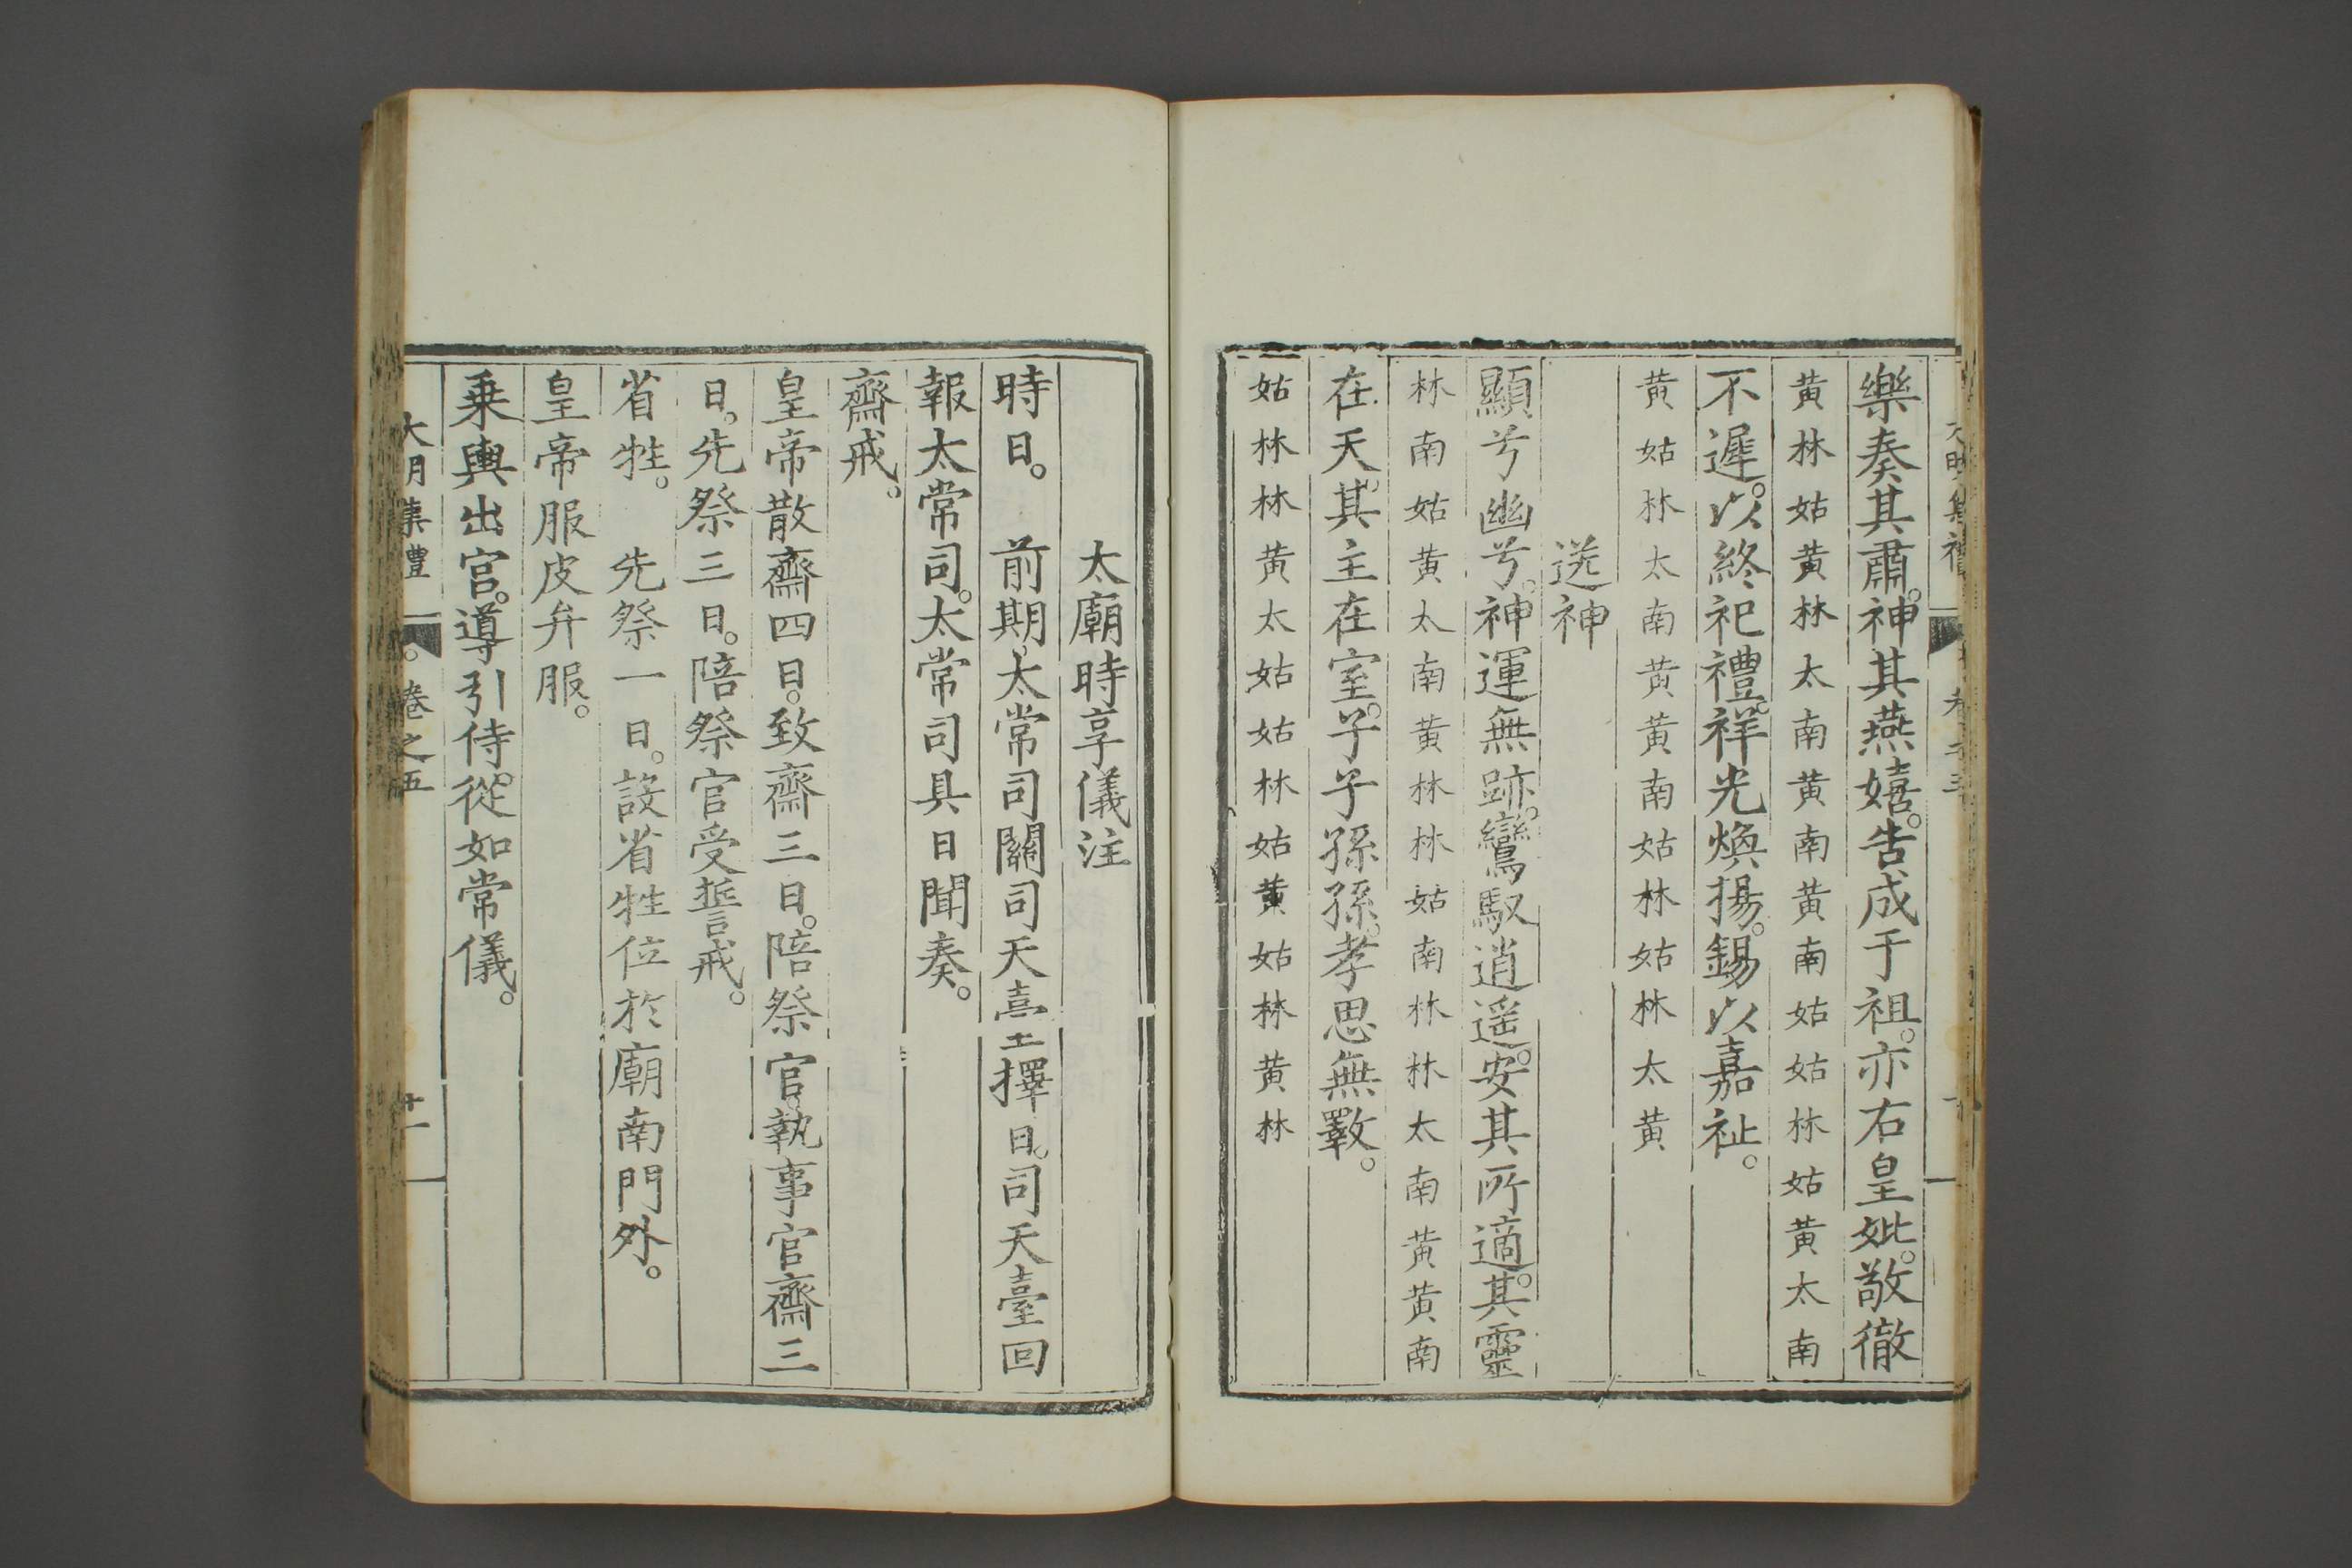 樂奏其肅。神其燕嬉。告成于祖。亦右皇妣。敬徹
黃林姑黃林太南黃南黃南姑姑林姑黃太南
不遲。以終祀禮。祥光煥揚。錫以嘉祉。
黃姑林太南黃黃南姑林姑林太黃
送神
顯兮幽兮。神運無跡。鸞馭逍遥。安其所適。其靈
林南姑黃太南黃林林姑南林林太南黃黃南
在天。其主在室。子子孫孫。孝思無斁。
姑林林黃太姑姑林姑黃姑林黃林
太廟時享儀注
時日。 前期。太常司關司天臺擇日。司天臺回
報太常司。太常司具日聞奏。
齋戒。
皇帝散齋四日。致齋三日。陪祭官。執事官齋三
日。先祭三日。陪祭官受誓戒。
省牲。 先祭一日。設省牲位於廟南門外。
皇帝服皮弁服。
乗輿出宫。導引侍。從如常儀。
大明集禮 卷之五 十一